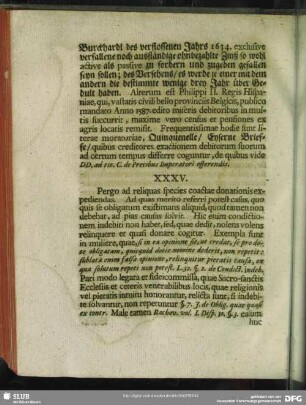 Burckhardi des verflossenen Jahrs 1634. exclusive
verfallene noch ausständige ohnbezahlte Zinß so wohl
active als passive zu fordern und zugeben gefallen
seyn sollen; des Versehens/ es werde je einer mit dem
andern die bestimmte wenige drey Jahr über Ge-
dult haben. Alterum est Philippi II. Regis Hispa-
niae, qui, vastatis civili bello provinciis Belgicis, publico
mandato Anno 1587. edito miseris debitoribus in mul-
tis succurrit, maxime vero census et pensiones ex
agris locatis remisit. Frequentissimae hodie sunt li-
terae moratoriae, Quinquenelle/ Enserne Brief-
fe/ quibus creditores exactionem debitorum suorum
ad certum tempus differre coguntur, de quibus vide
DD. ad tit. C. de Precibus Imperatori offerendis.
XXXV.
Pergo ad reliquas species coactae donationis ex-
pediendas. Ad quas merito referri potest casus, quo
quis se obligatum existimans aliquid, quod tamen non
debebat, ad pias causas solvit. Hic enim condictio-
nem indebiti non habet, sed, quae dedit, nolens volens
relinquere et quasi donare cogitur. Exempla sunt
in muliere, quae, si in ea opinione sit, ut credat, se pro do-
te obligatam, quicquid dotis nomine dederit, non repetit:
sublata enim falsa opinione, relinquitur pietatis causa, ex
qua solutum repeti non potest. l. 32. §. 2. de Condict. indeb.
Pari modo legata et fideicommissa, quae Sacro-sanctis
Ecclesiis et ceteris venerabilibus locis, quae religionis
vel pietatis intuitu honorantur, relicta sunt, si indebi-
te solvantur, non repetuntur §. 7. J. de Oblig. quae quasi
ex contr. Male tamen Bachov. vol. 1. Disp. 10. §. 3. casum
hunc
SLUB
DFG